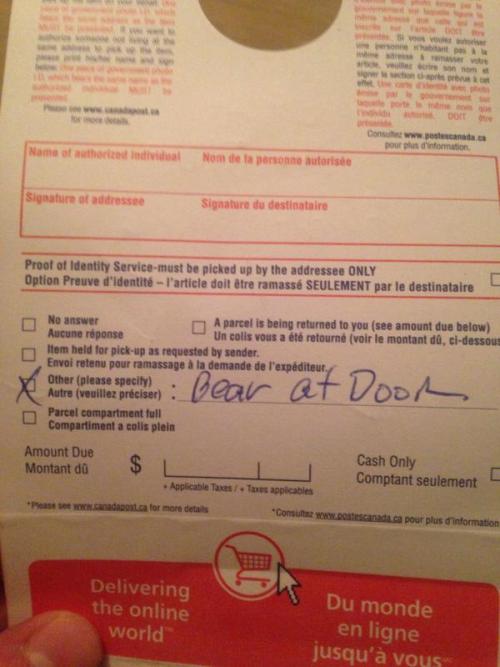 authorize someone not living at the
same address to pick up the item,
please print his/her name and sign
below. One piece of government photo
I.D. which bears the same name as the
authorized individual MUST be
presented.
Please see www.canadapost.ca
for more details.
même adresse que celle qui est
inscrite sur l'article DOIT être
présentée. Si vous voulez autoriser
une personne n'habitant pas à la
même adresse à ramasser votre
article, veuillez écrire son nom et
signer la section ci-après prévue à cet
effet. Une carte d'identité avec photo
émise par le gouvernement sur
laquelle porte le même nom que
l'individu autorisé, DOIT être
présentée.
Consultez www.postescanada.ca
pour plus d'information.
Name of authorized individual Nom de la personne autorisée
Signature of addressee Signature du destinataire
Proof of Identity Service-must be picked up by the addressee ONLY
Option Preuve d'identité – l'article doit être ramassé SEULEMENT par le destinataire
No answer
Aucune réponse
A parcel is being returned to you (see amount due below)
Un colis vous a été retourné (voir le montant dû, ci-dessous
Item held for pick-up as requested by sender.
Envoi retenu pour ramassage à la demande de l'expéditeur.
Other (please specify)
Autre (veuillez préciser) : Bear at Door
Parcel compartment full
Compartiment a colis plein
Amount Due
Montant dû $
+ Applicable Taxes / + Taxes applicables
Cash Only
Comptant seulement
*Please see www.canadapost.ca for more details
*Consultez www.postescanada.ca pour plus d'information
Delivering
the online
world™
Du monde
en ligne
jusqu'à vous™